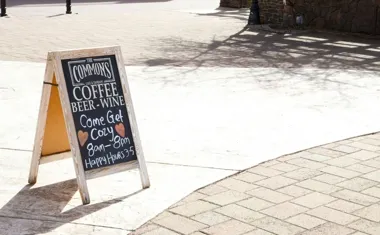 THE
COMMONS
COFFEE
BEER-WINE
Come Get
Cozy
8am-8pm
Happy Hours 3-5